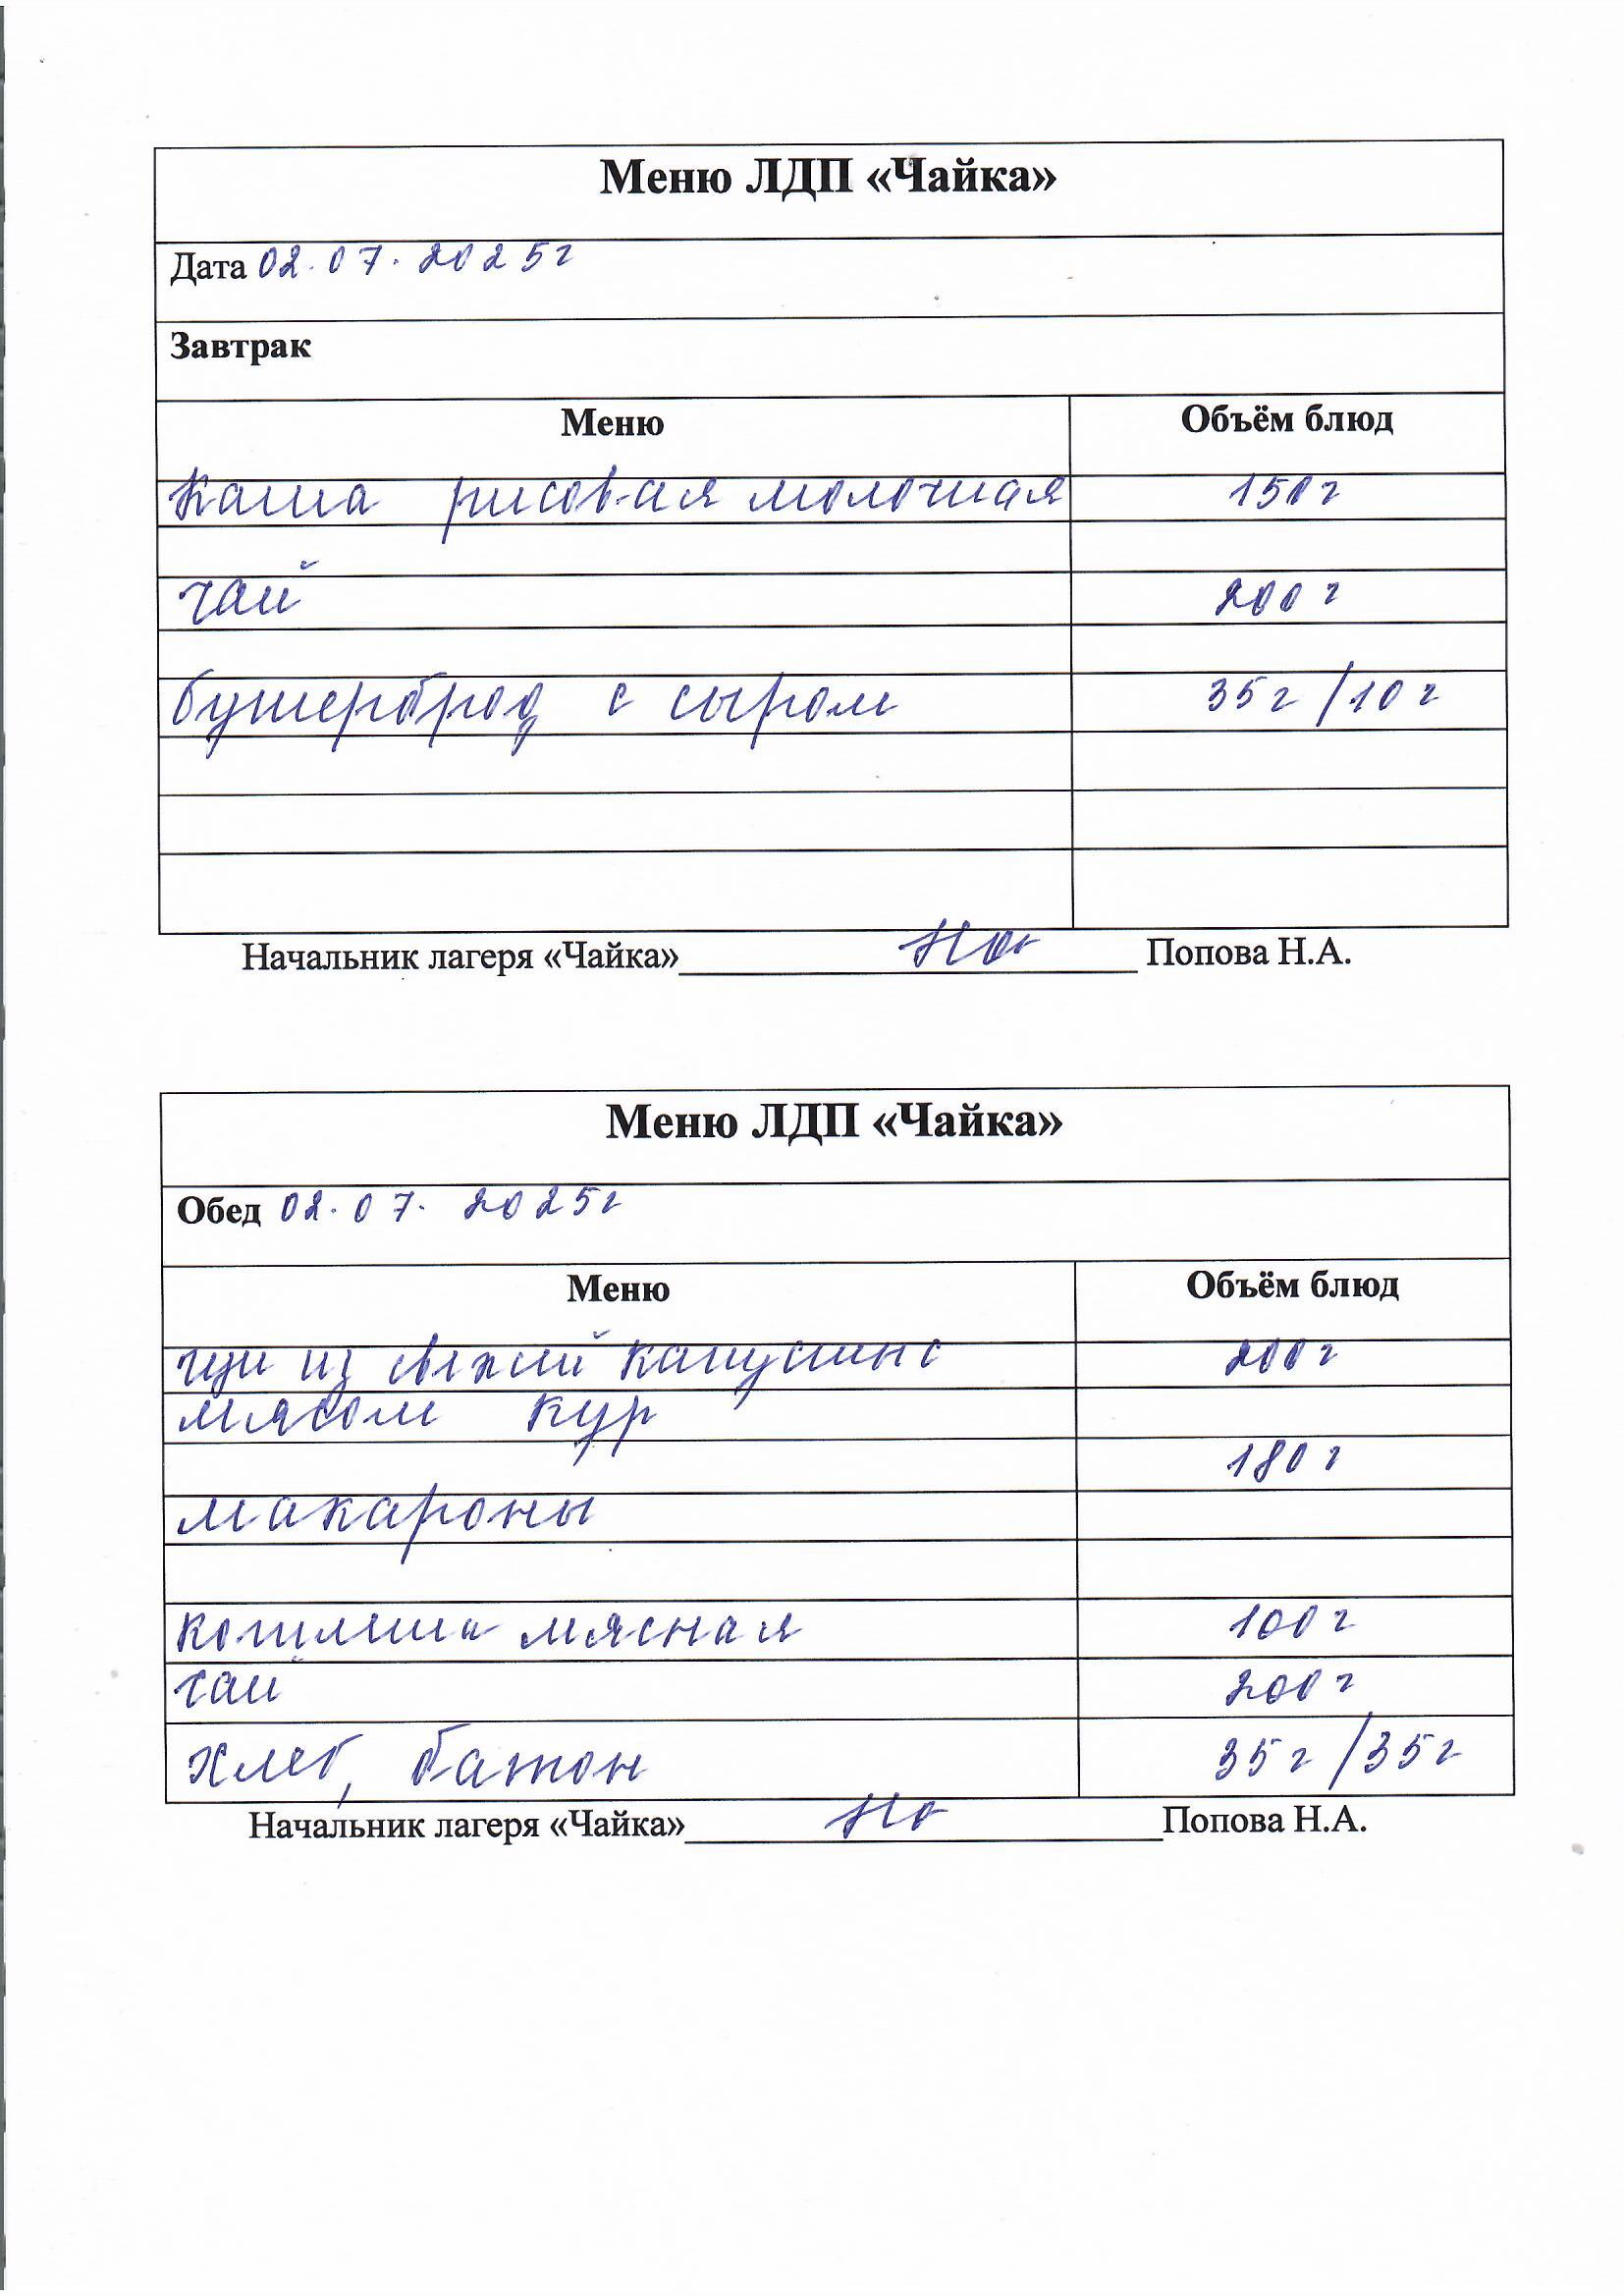 Меню ЛДП «Чайка»
Дата 02.07.2025г
Завтрак
Меню Объём блюд
Каша рисовая молочная 150г
чай 200г
бутерброд с сыром 35г/10г
Начальник лагеря «Чайка» Попова Н.А.
Меню ЛДП «Чайка»
Обед 02.07.2025г
Меню Объём блюд
щи из свежей капусты с 200г
мясом кур
180г
макароны
котлета мясная 100г
чай 200г
хлеб, батон 35г/35г
Начальник лагеря «Чайка» Попова Н.А.